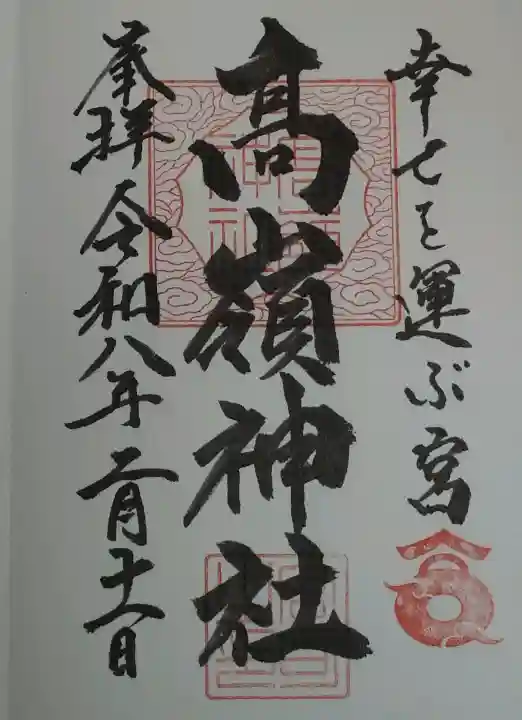 幸せを運ぶ宮
高嶺神社
奉拝 令和八年二月十一日